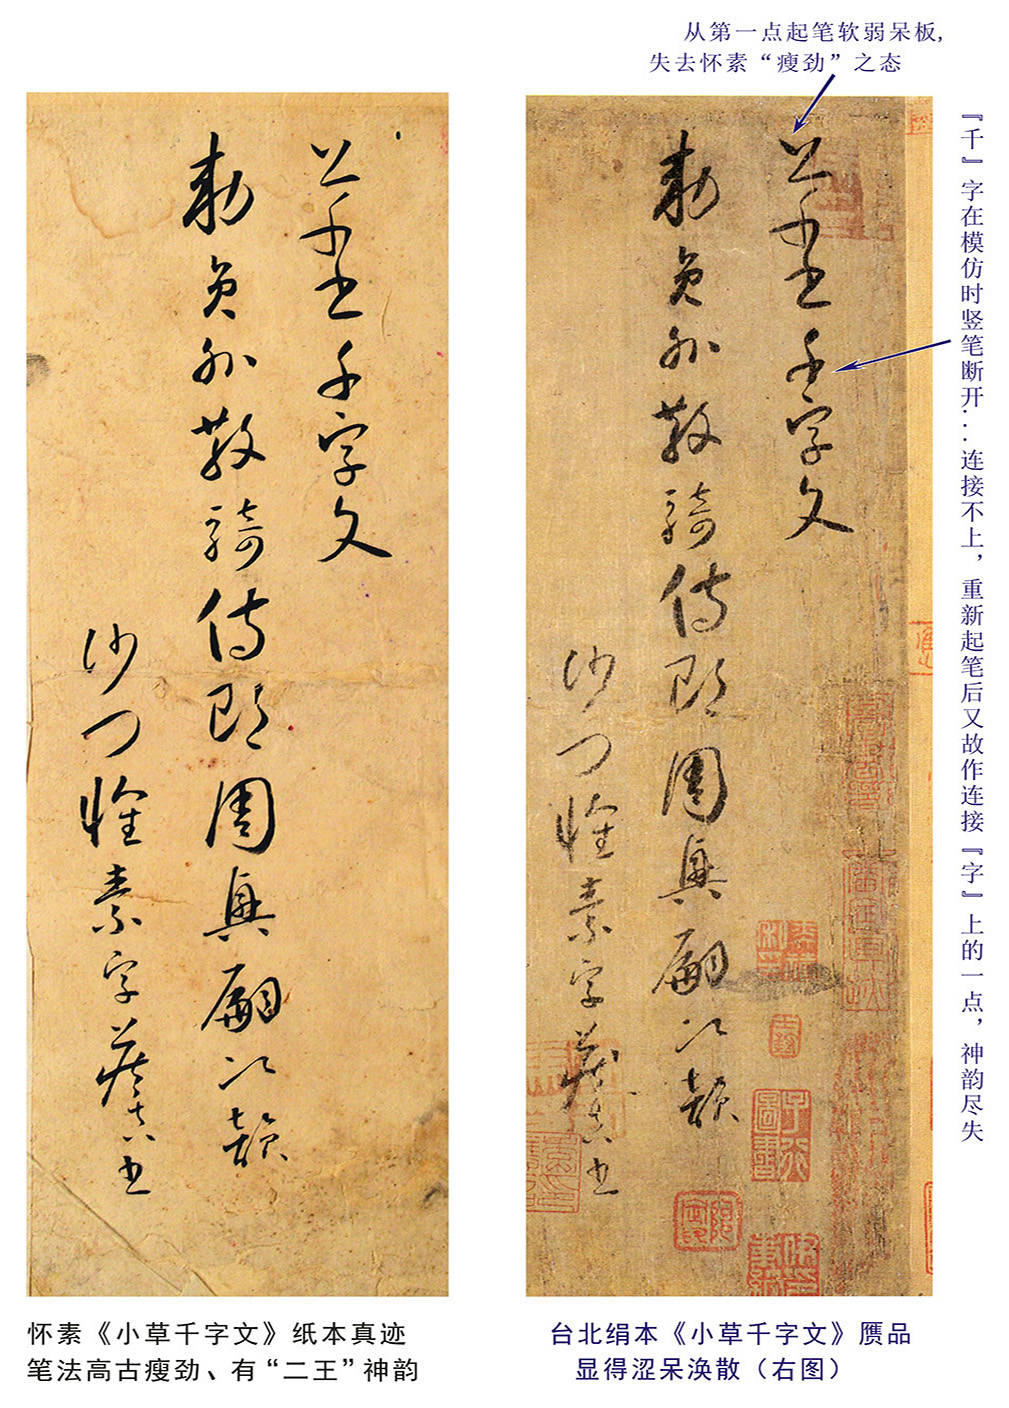 从第一点起笔软弱呆板,
失去怀素“瘦劲”之态
『千』字在模仿时竖笔断开...连接不上，重新起笔后又故作连接『字』上的一点，神韵尽失
草書千字文
敕員外散騎侍郎周興嗣次韻
沙门懷素字藏真书
草書千字文
敕員外散騎侍郎周興嗣次韻
沙门懷素字藏真书
怀素《小草千字文》纸本真迹
笔法高古瘦劲、有“二王”神韵
台北绢本《小草千字文》赝品
显得涩呆涣散（右图）